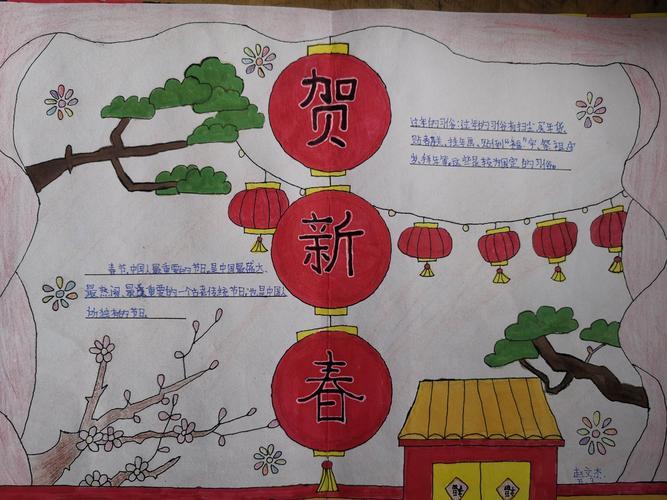 贺
新
春
过年的习俗:过年的习俗有扫尘、买年货、
贴春联、挂年画、贴倒"福"字、祭祖、守
岁、拜年等,这些是较为固定的习俗。
春节,中国人最重要的节日,是中国最盛大、
最热闹、最重要的一个古老传统节日,也是中国人
的独有的节日。
赵文杰